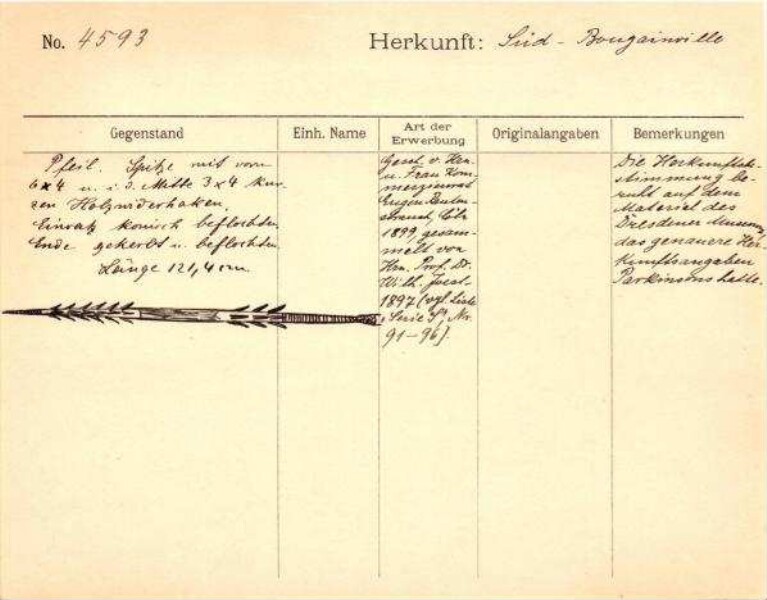 No. 4593
Herkunft: Süd - Bougainville
Gegenstand
Einh. Name
Art der Erwerbung
Originalangaben
Bemerkungen
Pfeil. Spitze mit vorn
6x4 u. i. d. Mitte 3x4 kur-
zen Holzwiderhaken.
Einsatz konisch beflochten
Ende gekerbt u. beflochten
Länge 121,4 cm
Gesch. v. Hrn.
u. Frau Kom-
merzienrat
Eugen Rauten-
strauch, Cöln
1899, gesam-
melt von
Hrn. Prof. Dr.
Wilh. Joest
1897 (vgl. Liste
Serie Nr.
91-96).
Die Herkunftsbe-
stimmung be-
ruht auf dem
Material des
Dresdener Museums,
das genauere Her-
kunftsangaben
Parkinsons hatte.